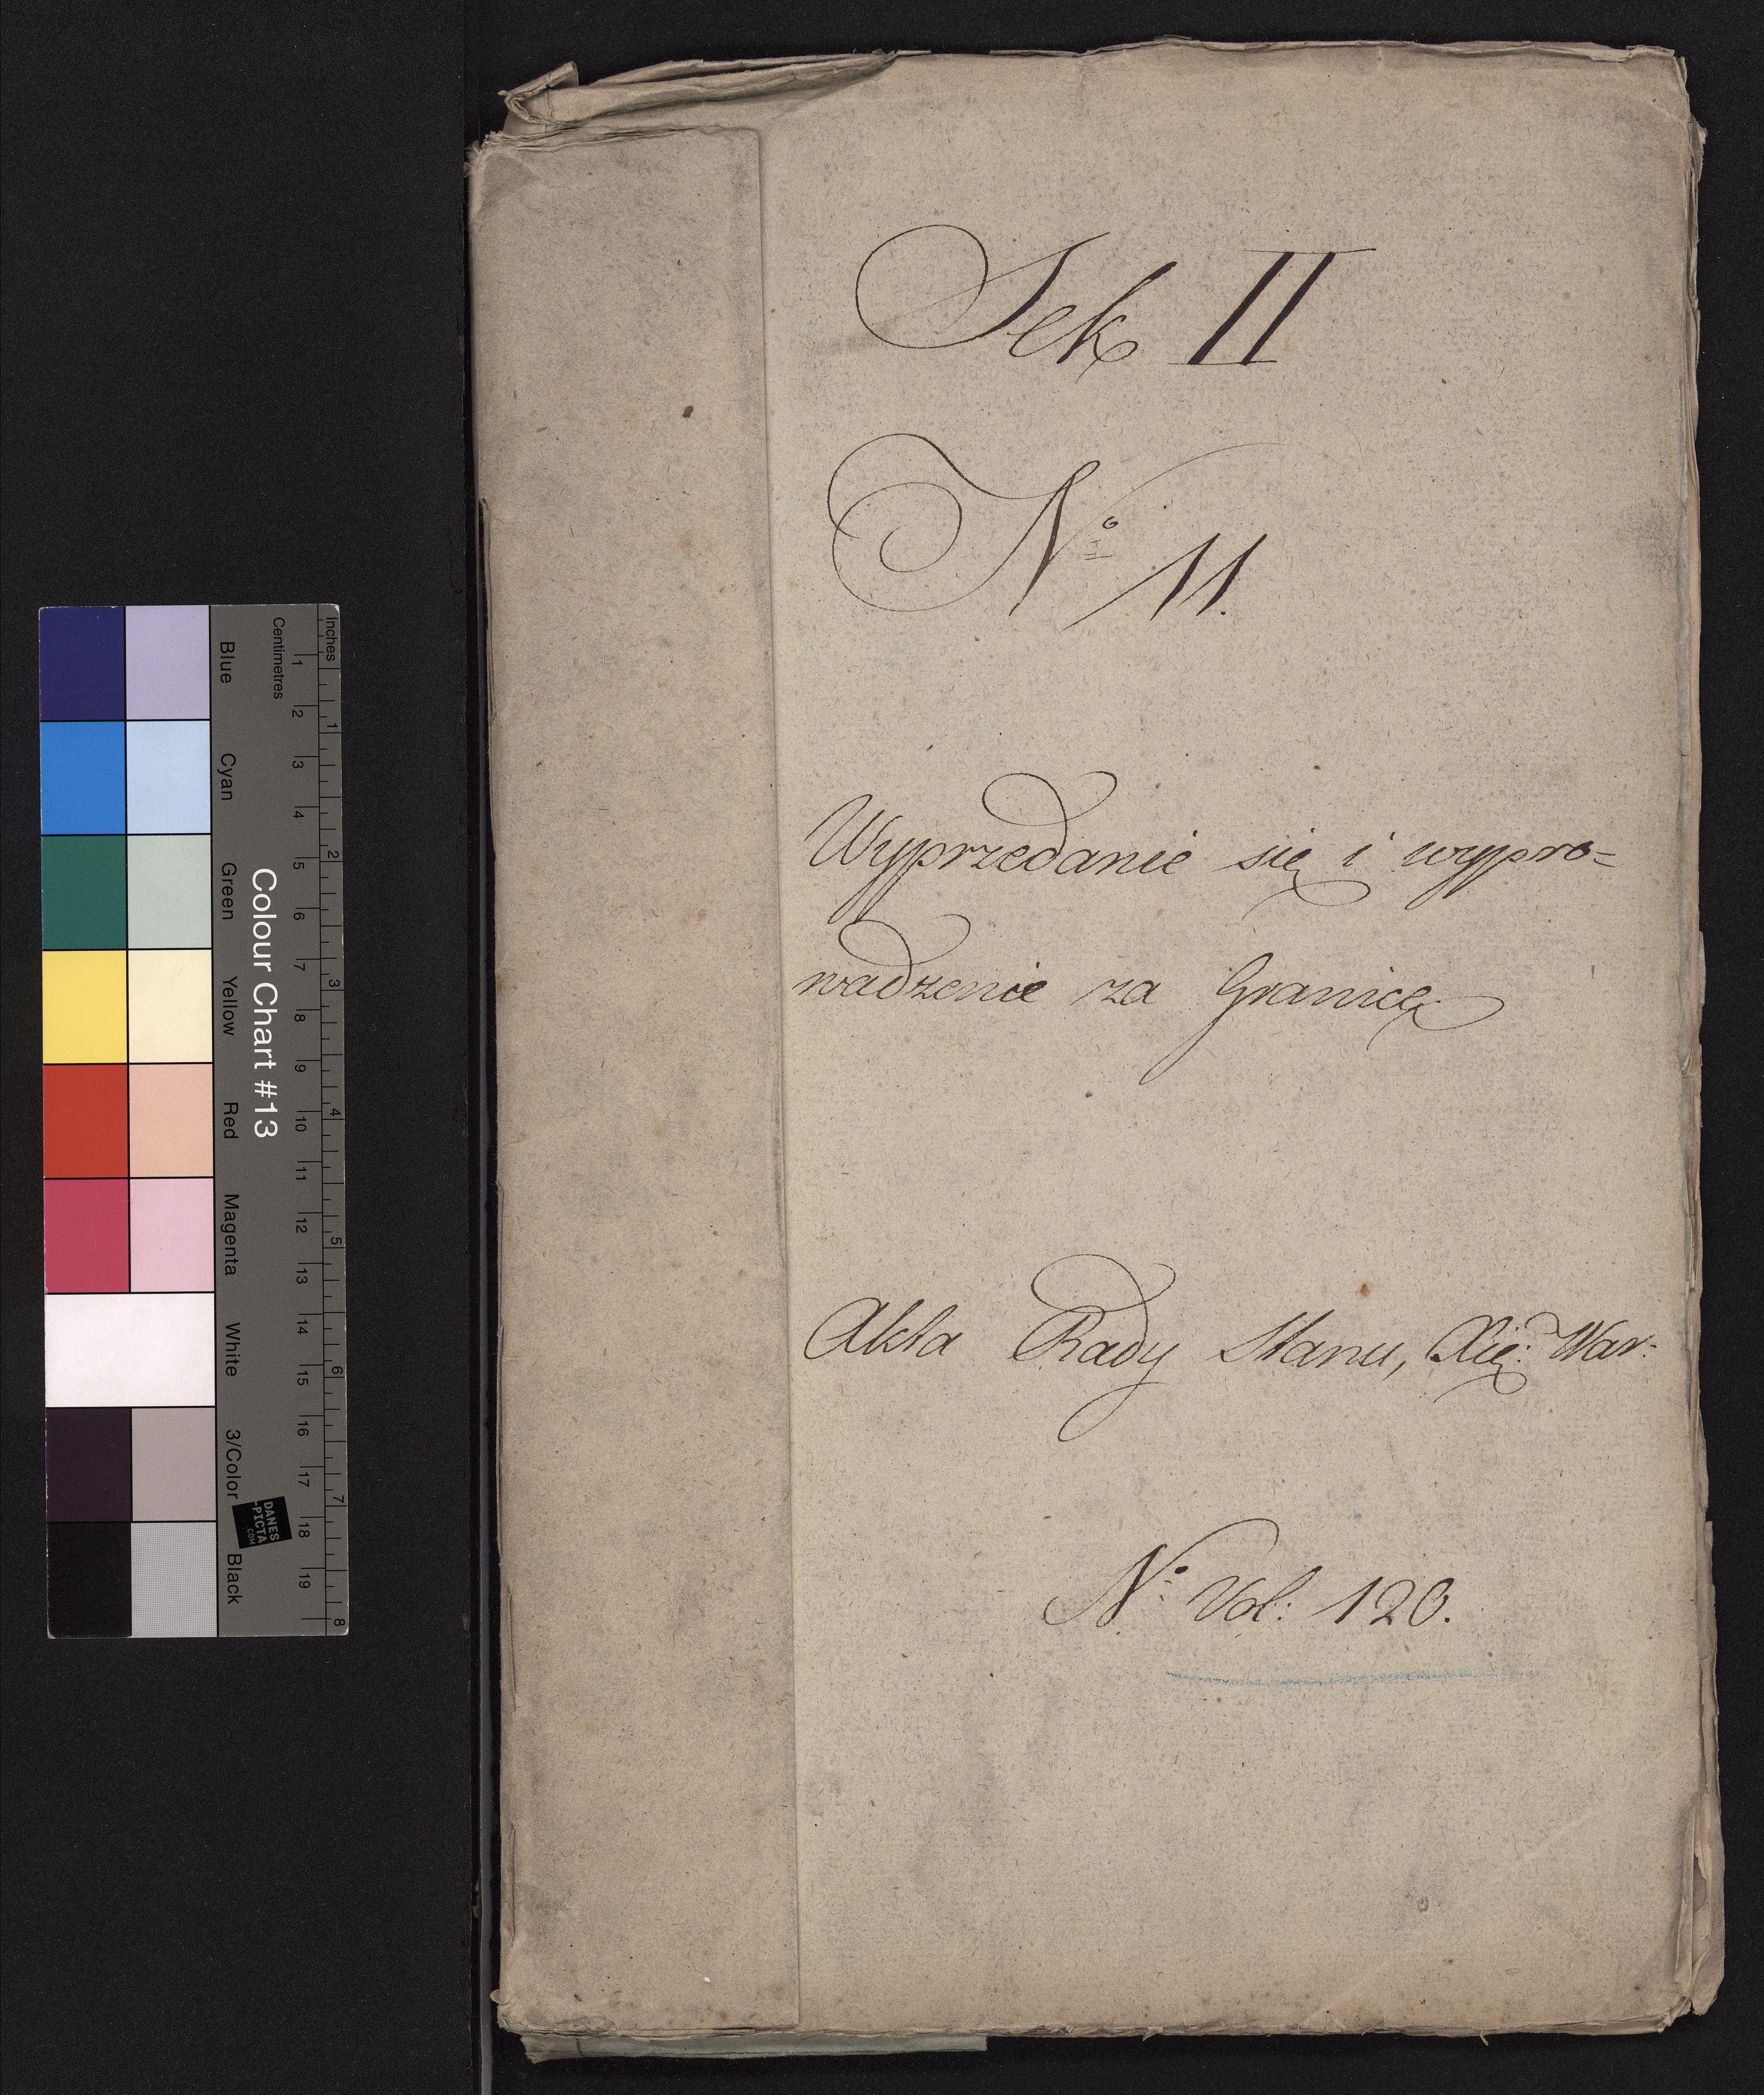 Sek II
No 11.
Wyprzedanie się i wypro=
wadzenie za Granicę
Akta Rady Stanu, Xię: War:
No Vol: 120.
Inches
Centimetres
1 2 3 4 5 6 7 8 9 10 11 12 13 14 15 16 17 18 19
1 2 3 4 5 6 7 8
Colour Chart #13
Blue
Cyan
Green
Yellow
Red
Magenta
White
3/Color
Black
DANES
-PICTA
.COM